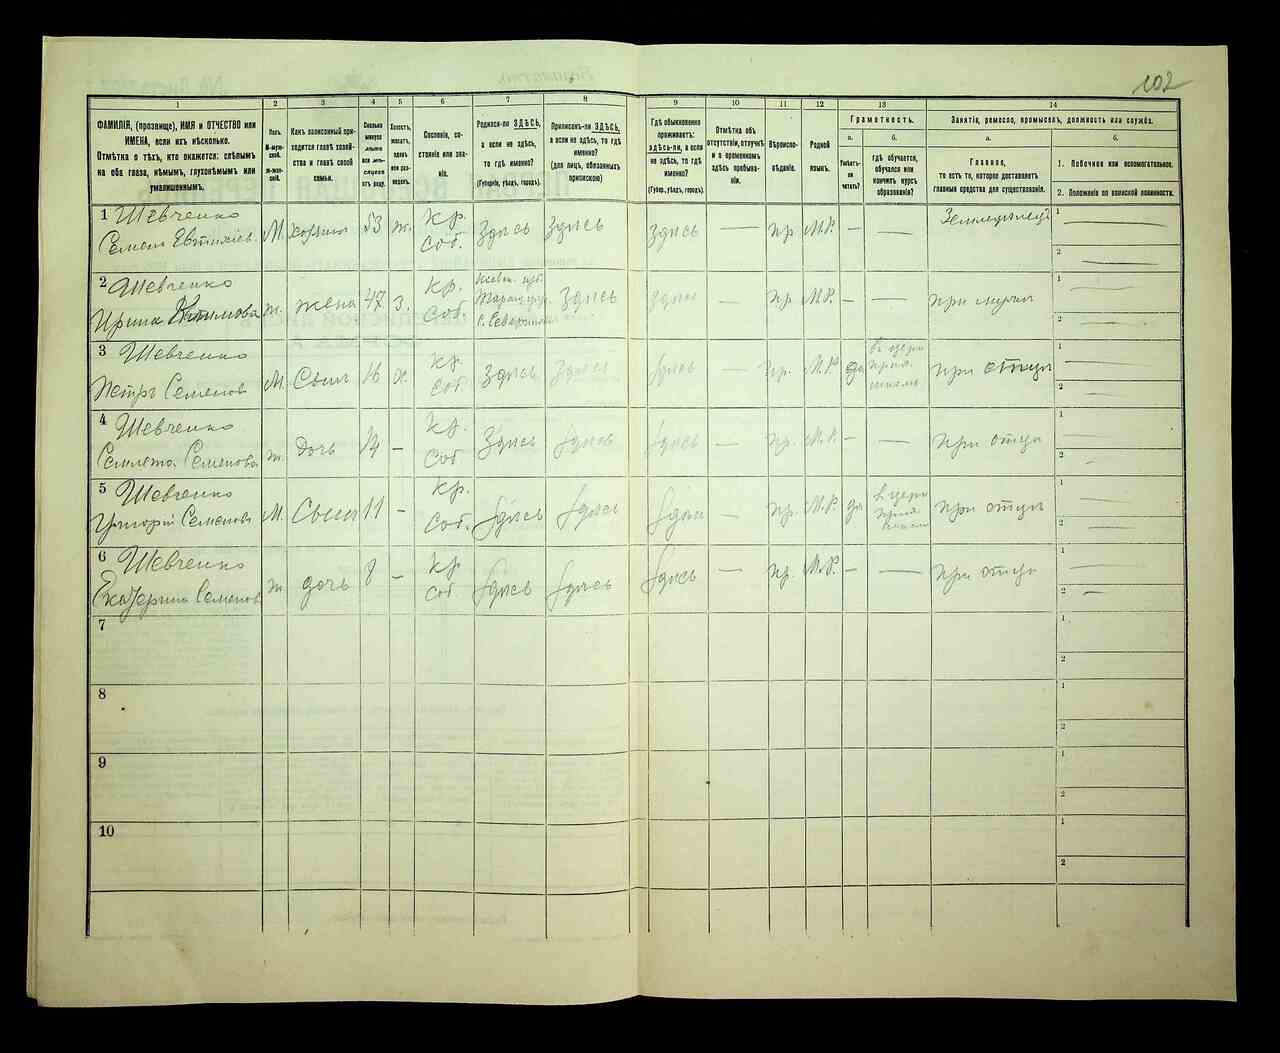 102
1 2 3 4 5 6 7 8 9 10 11 12 13 14
ФАМИЛІЯ, (прозвище), ИМЯ и ОТЧЕСТВО или ИМЕНА, если ихъ нѣсколько.
Отмѣтка о тѣхъ, кто окажется: слѣпымъ на оба глаза, нѣмымъ, глухонѣмымъ или умалишеннымъ.
Полъ.
М-мужской.
Ж-женскій.
Какъ записанный приходится главѣ хозяйства и главѣ своей семьи.
Сколько минуло лѣтъ или мѣсяцевъ отъ роду.
Холостъ, женатъ, вдовъ или разведенъ.
Сословіе, состояніе или званіе.
Родился-ли ЗДѢСЬ, а если не здѣсь, то гдѣ именно?
(Губернія, уѣздъ, городъ).
Приписанъ-ли ЗДѢСЬ, а если не здѣсь, то гдѣ именно?
(для лицъ, обязанныхъ припискою)
Гдѣ обыкновенно проживаетъ: здѣсь-ли, а если не здѣсь, то гдѣ именно?
(Губер., уѣздъ, городъ).
Отмѣтка объ отсутствіи, отлучкѣ и о временномъ здѣсь пребываніи.
Вѣроисповѣданіе.
Родной языкъ.
Грамотность.
а. Умѣетъ-ли читать?
б. гдѣ обучается, обучался или кончилъ курсъ образованія?
Занятіе, ремесло, промыселъ, должность или служба.
а. Главное, то есть то, которое доставляетъ главныя средства для существованія.
б.
1. Побочное или вспомогательное.
2. Положеніе по воинской повинности.
1 Шевченко М. хозяинъ 53 ж. кр. соб. Здѣсь Здѣсь Здѣсь — пр. М.Р. — — Земледѣлецъ 1 —
Семенъ Евтихіев. 2 —
2 Шевченко ж. жена 47 з. кр. соб. Кіевск. губ. Здѣсь Здѣсь — пр М.Р. — — при мужѣ 1 —
Ирина 2 —
3 Шевченко М. Сынъ 16 х. кр. соб. Здѣсь Здѣсь Здѣсь — пр. М.Р. да въ церк. прих. школѣ при отцѣ 1 —
Петръ Семенов 2 —
4 Шевченко ж. дочь 14 — кр. соб. Здѣсь Здѣсь Здѣсь — пр. М.Р. — — при отцѣ 1 —
Семенова 2 —
5 Шевченко М. Сынъ 11 — кр. соб. Здѣсь Здѣсь Здѣсь — пр. М.Р. да въ церк. прих. школѣ при отцѣ 1 —
Григорій Семенов 2 —
6 Шевченко ж дочь 8 — кр соб Здѣсь Здѣсь Здѣсь — пр. М.Р. — — при отцѣ 1 —
Екатерина Семенов 2 —
7 1
2
8 1
2
9 1
2
10 1
2